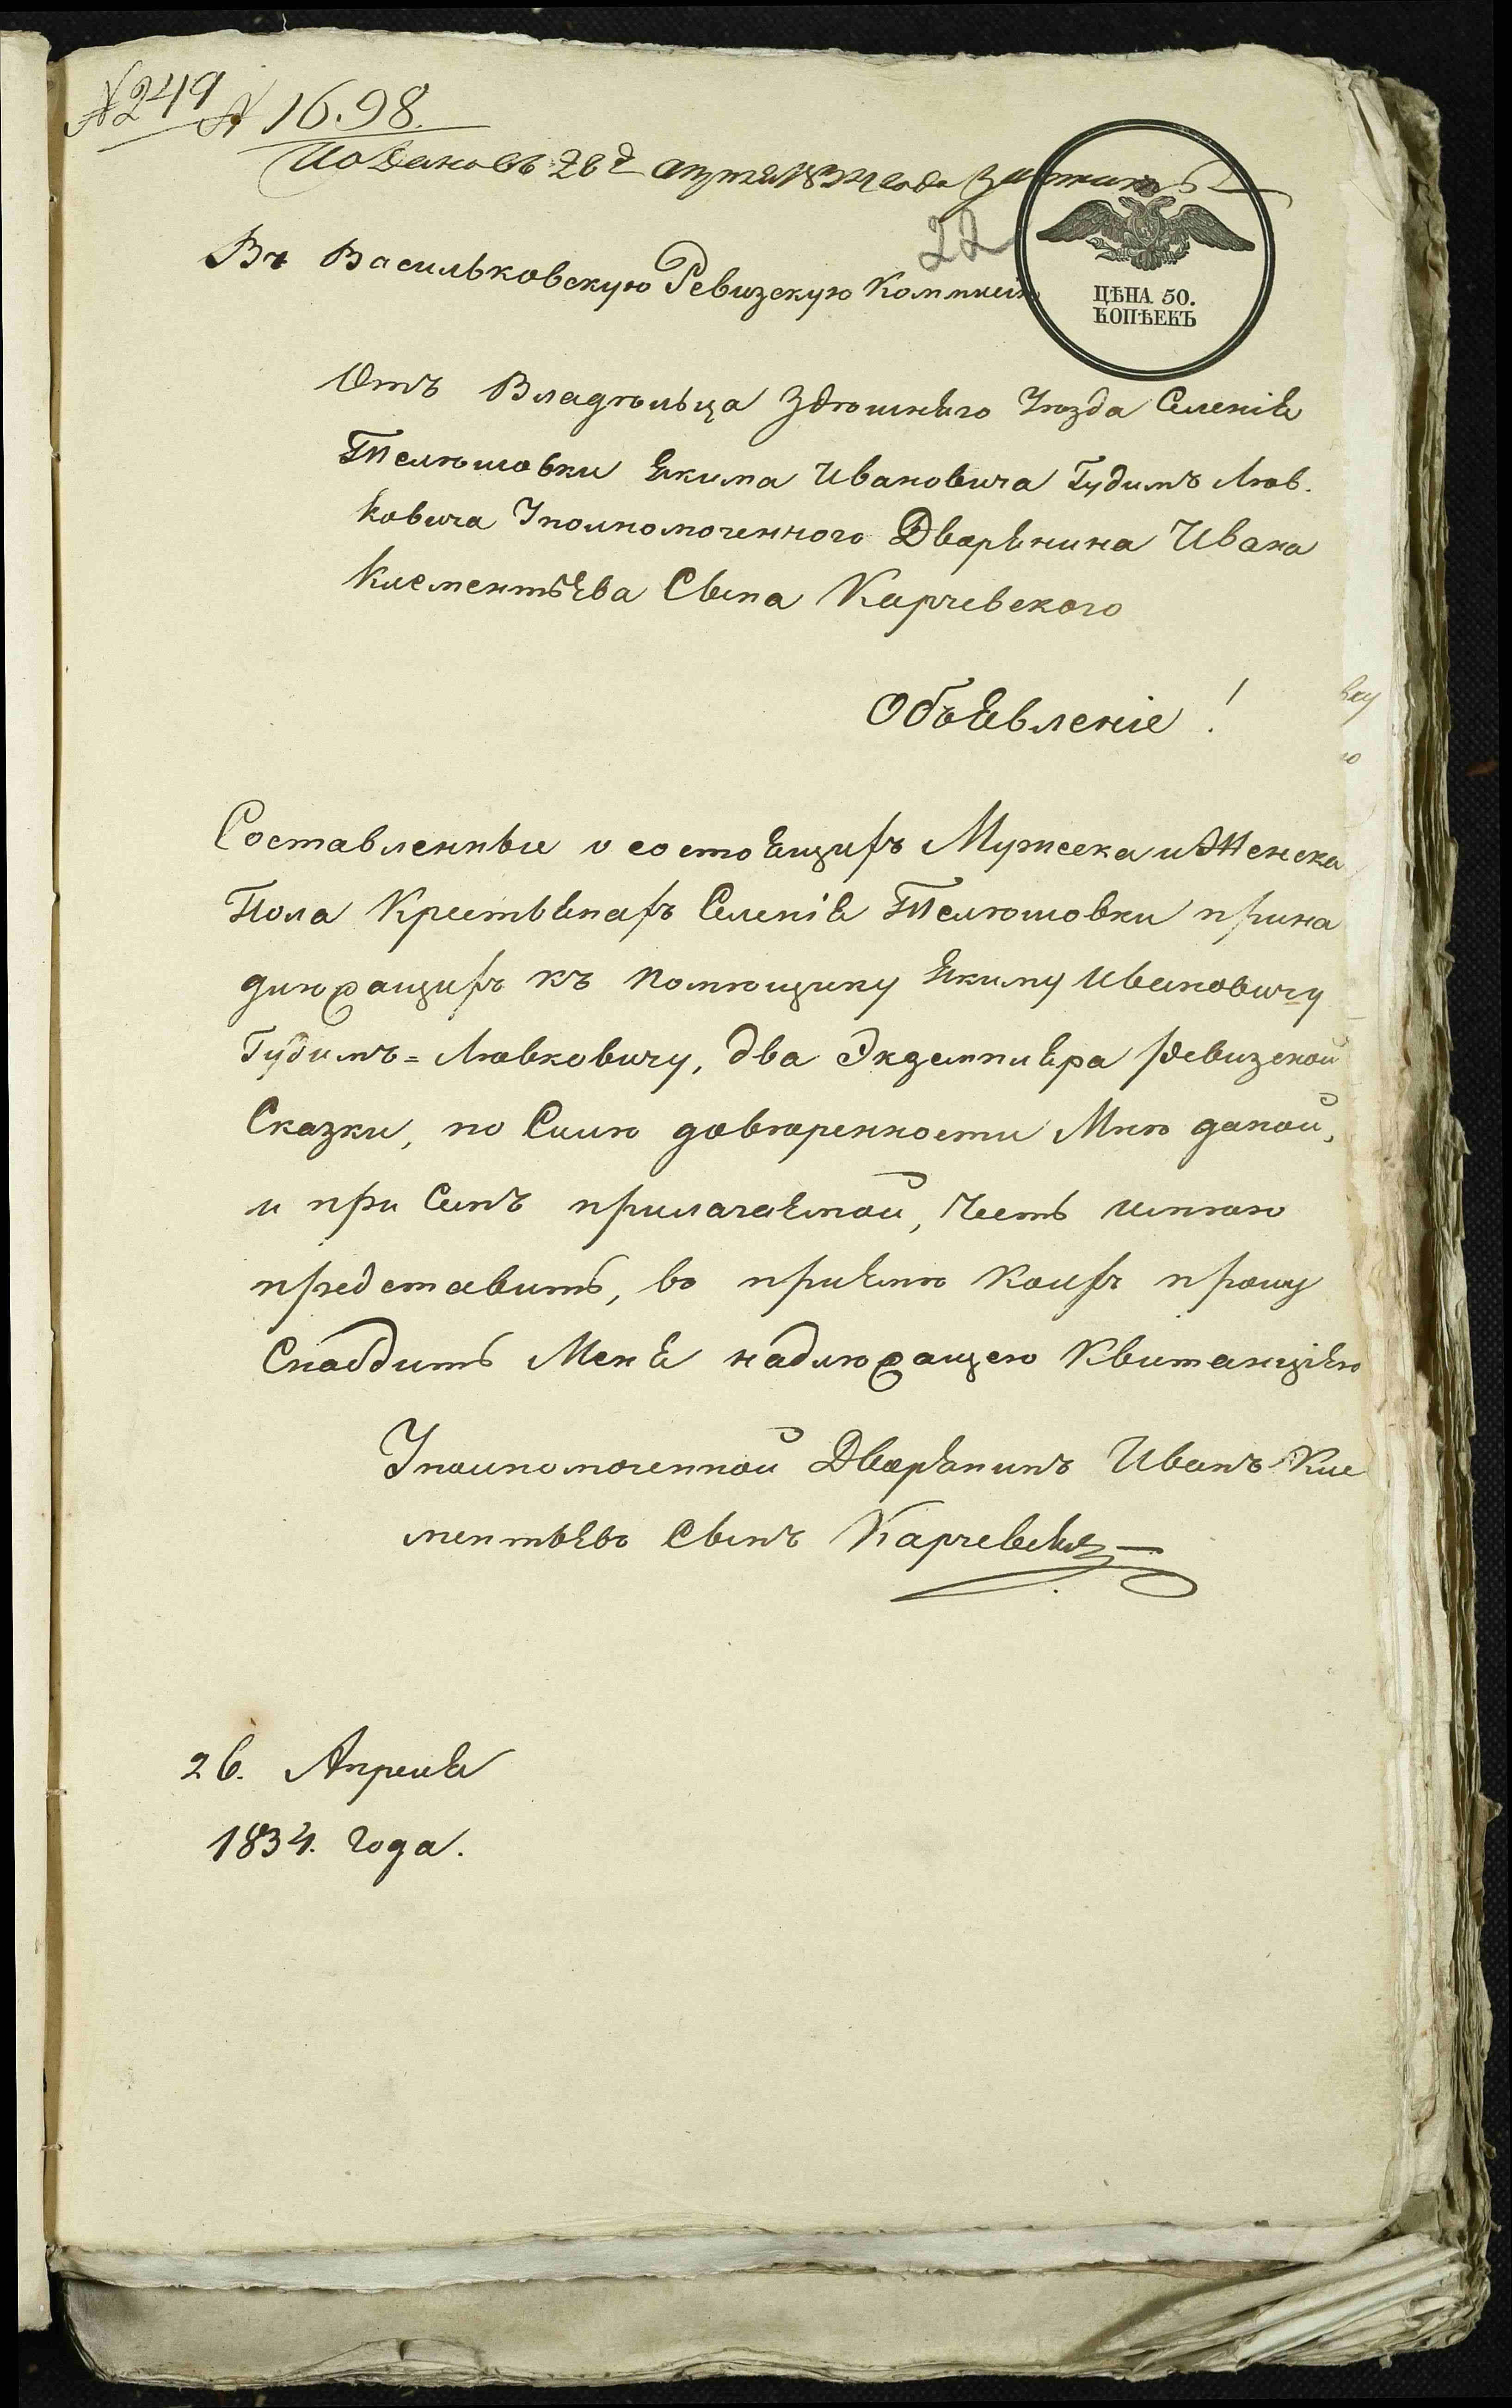 № 249 № 16.98.
Подановъ 26 г апреля 1834 года
22
ЦѢНА 50.
КОПѢЕКЪ
Въ Васильковскую Ревизскую Коммисію
Отъ Владѣльца Здѣшняго Уѣзда Селенія
Телѣшовки Якима Ивановича Гудимъ Лѣв.
ковича Уполномоченного Дворянина Ивана
Клементьева Сына Карчевского
Объявленіе!
Составленные о состоящихъ Мужеска и Женска
Пола Крестьянахъ Селенія Телѣшовки прина
длѣжащихъ къ Помѣщику Якиму Ивановичу
Гудимъ=Лѣвковичу, два Экземпляра Ревизской
Сказки, по Силѣ довѣренности Мнѣ даной,
и при Семъ прилагаемой, Честь имѣю
представить, во пріемѣ коихъ прошу
Снабдить Меня надлѣжащею Квитанціею
Уполномоченной Дворянинъ Иванъ Кле
ментьевъ Сынъ Карчевскій
26. Апреля
1834. Года.